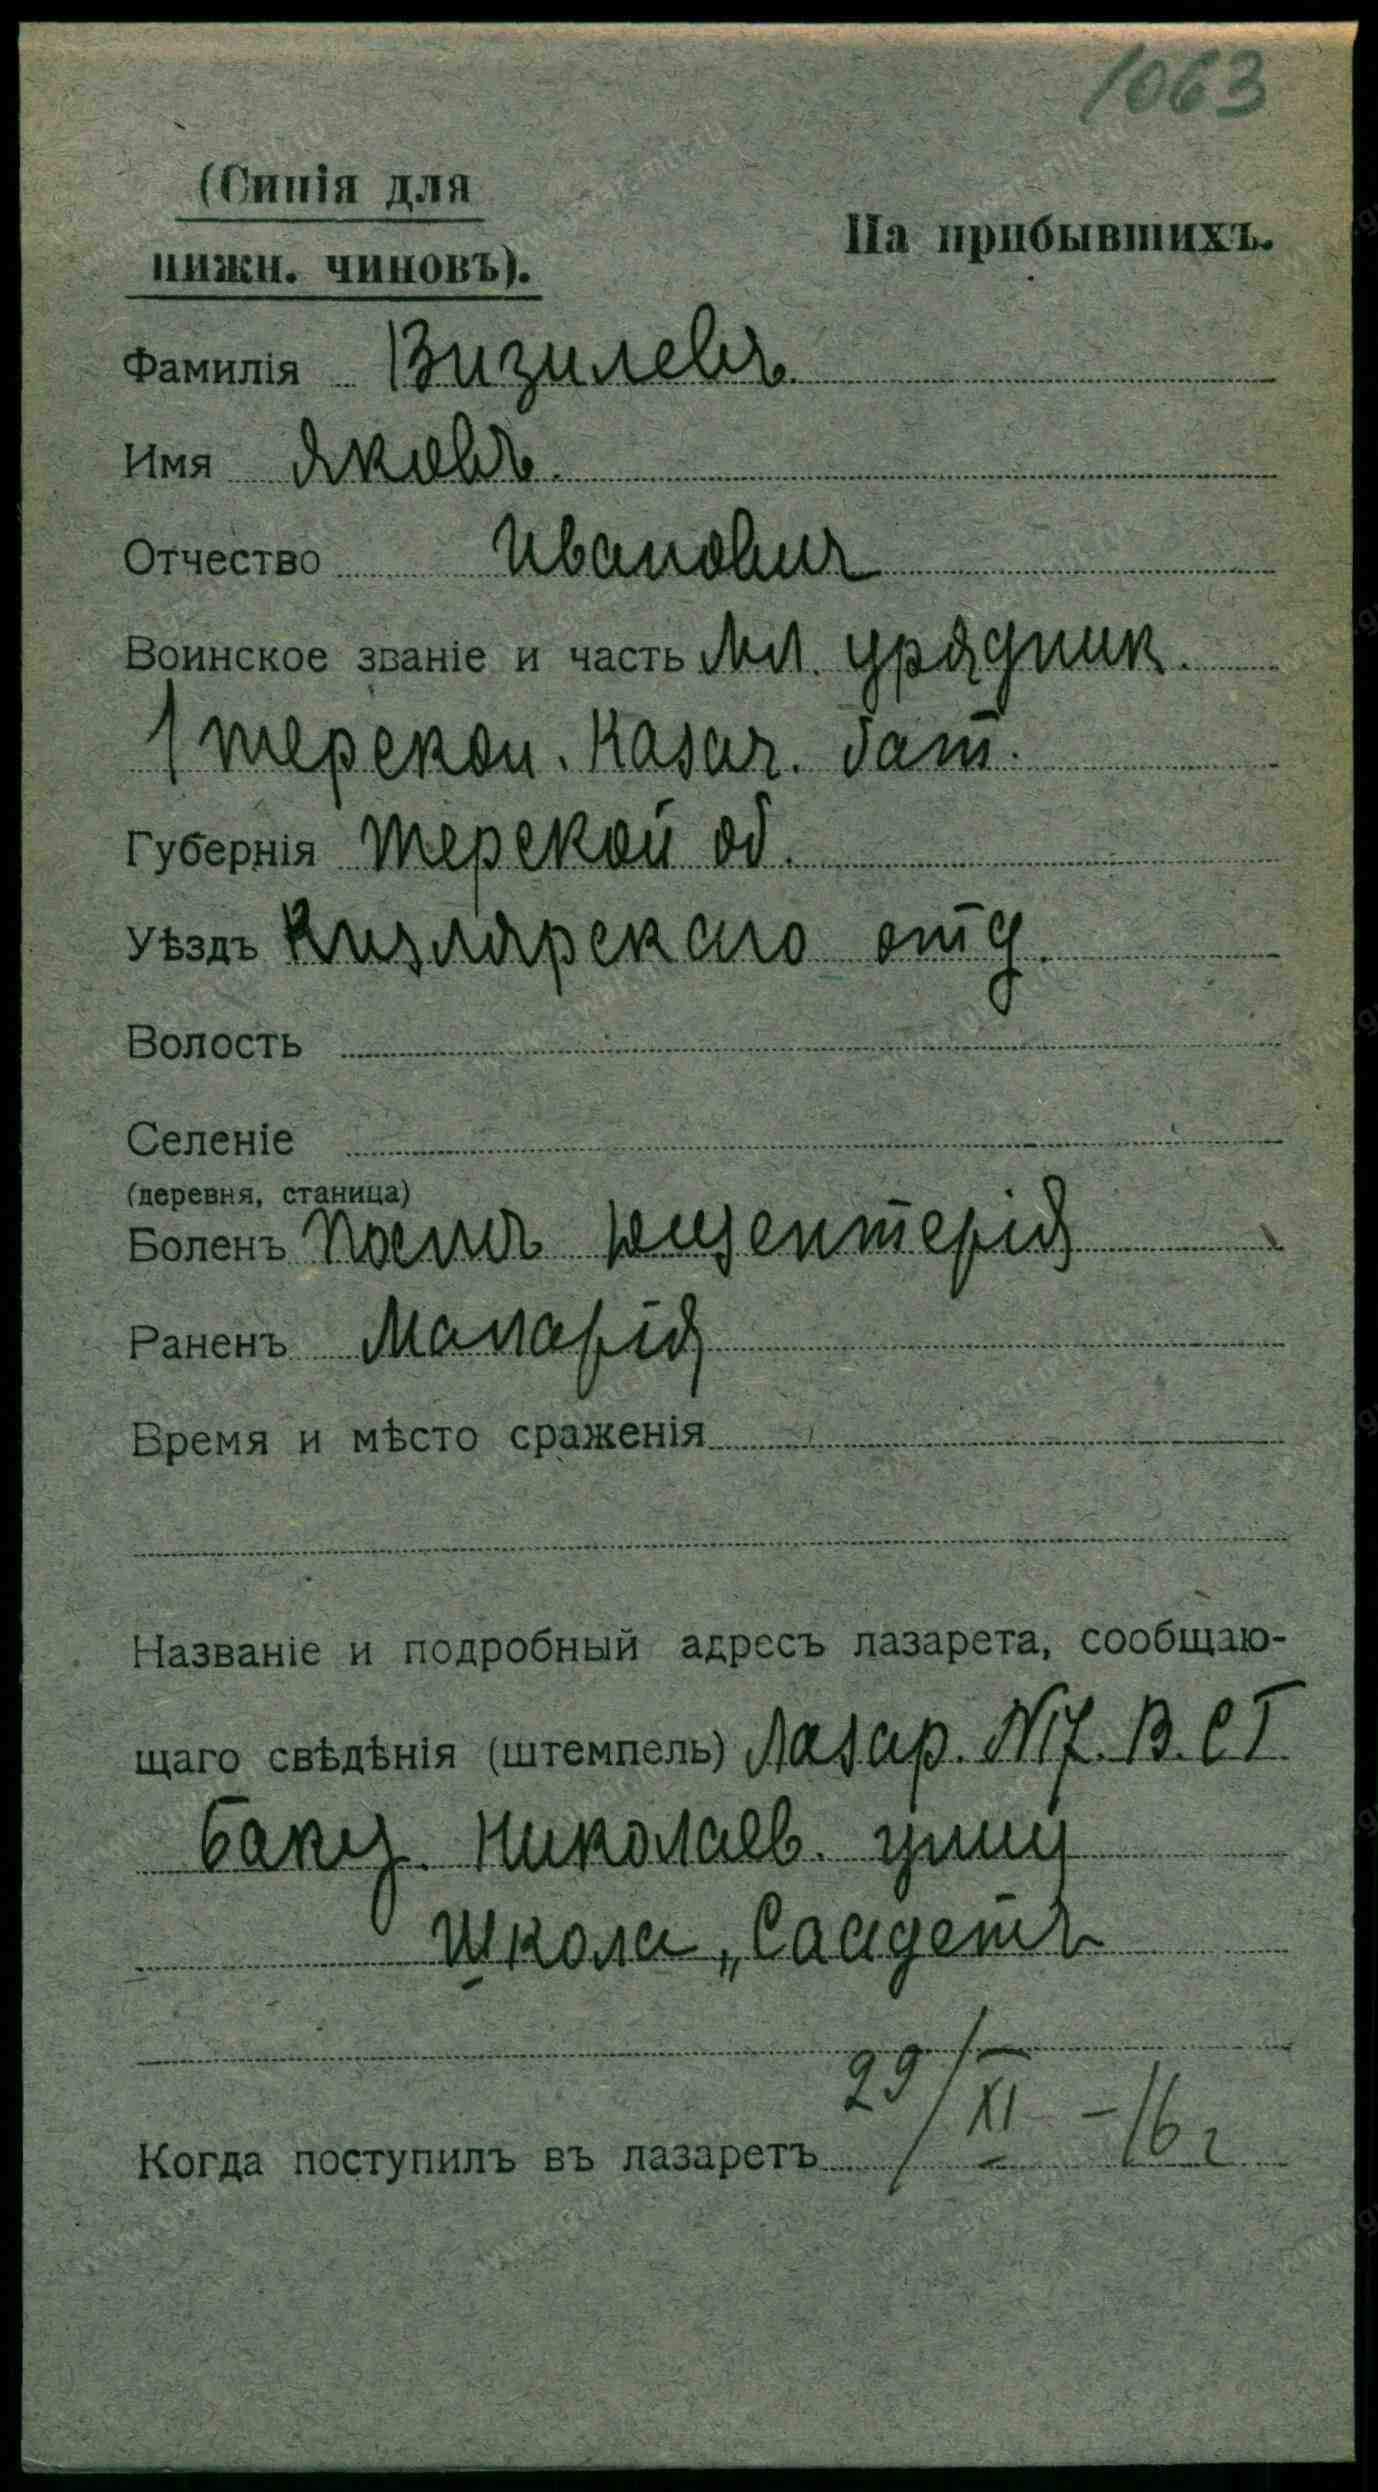 1063
(Синія для
нижн. чиновъ).
На прибывшихъ.
Фамилія Визилевъ
Имя Яковъ
Отчество Иванович
Воинское званіе и часть Мл. урядник.
1 терской. Казач. бат.
Губернія терской об.
Уѣздъ Кизлярскаго отд.
Волость
Селеніе
(деревня, станица)
Боленъ Послѣ дизентерія
Раненъ Малярія
Время и мѣсто сраженія
Названіе и подробный адресъ лазарета, сообщаю-
щаго свѣдѣнія (штемпель) Лазар. №7. В. С Г
Баку. Николаев. улиц
Школа „Саадетъ
29/XI - 16 г
Когда поступилъ въ лазаретъ